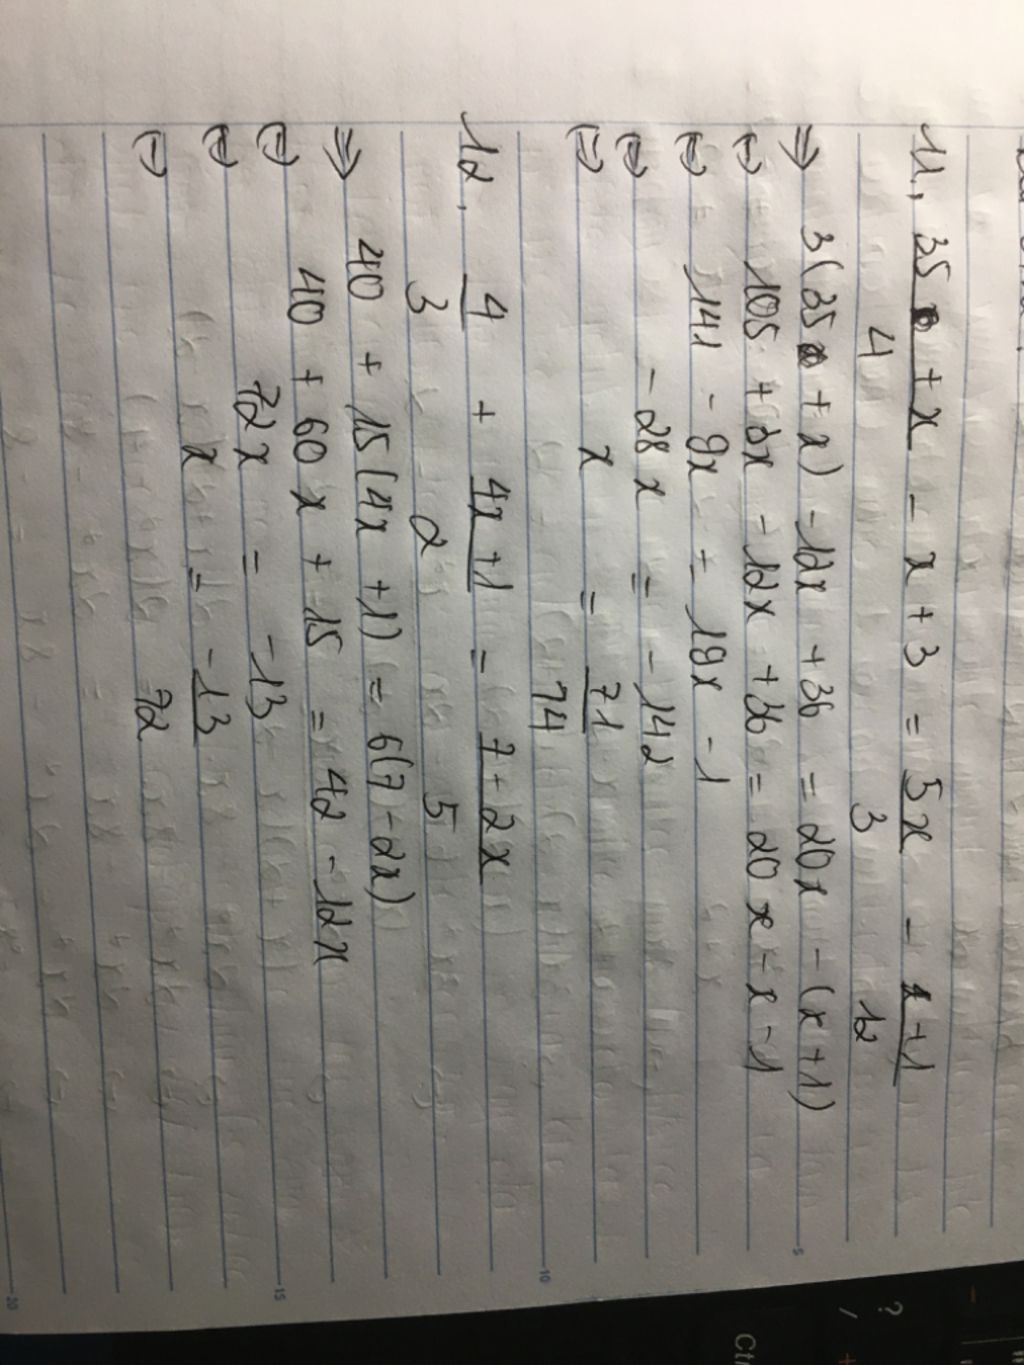 11, 35 + x - x + 3 = 5x - x+1
4 3 12
=> 3(35 + x) - 12x + 36 = 20x - (x+1)
<=> 105 + 3x - 12x + 36 = 20x - x - 1
<=> 141 - 9x = 19x - 1
<=> - 28x = - 142
<=> x = 71
14
12, 4 + 4x+1 = 7-2x
3 2 5
=> 40 + 15(4x+1) = 6(7-2x)
<=> 40 + 60x + 15 = 42 - 12x
<=> 72x = -13
<=> x = -13
72
5
10
15
20
? +
/
Ctr